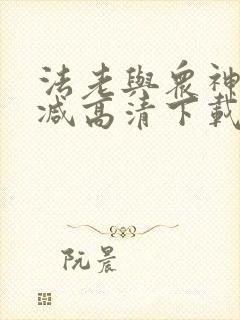 法老與眾神
減高清下載
阮晨